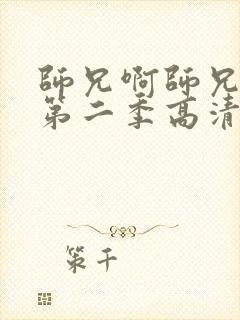 師兄啊師兄
第二季高清
策千